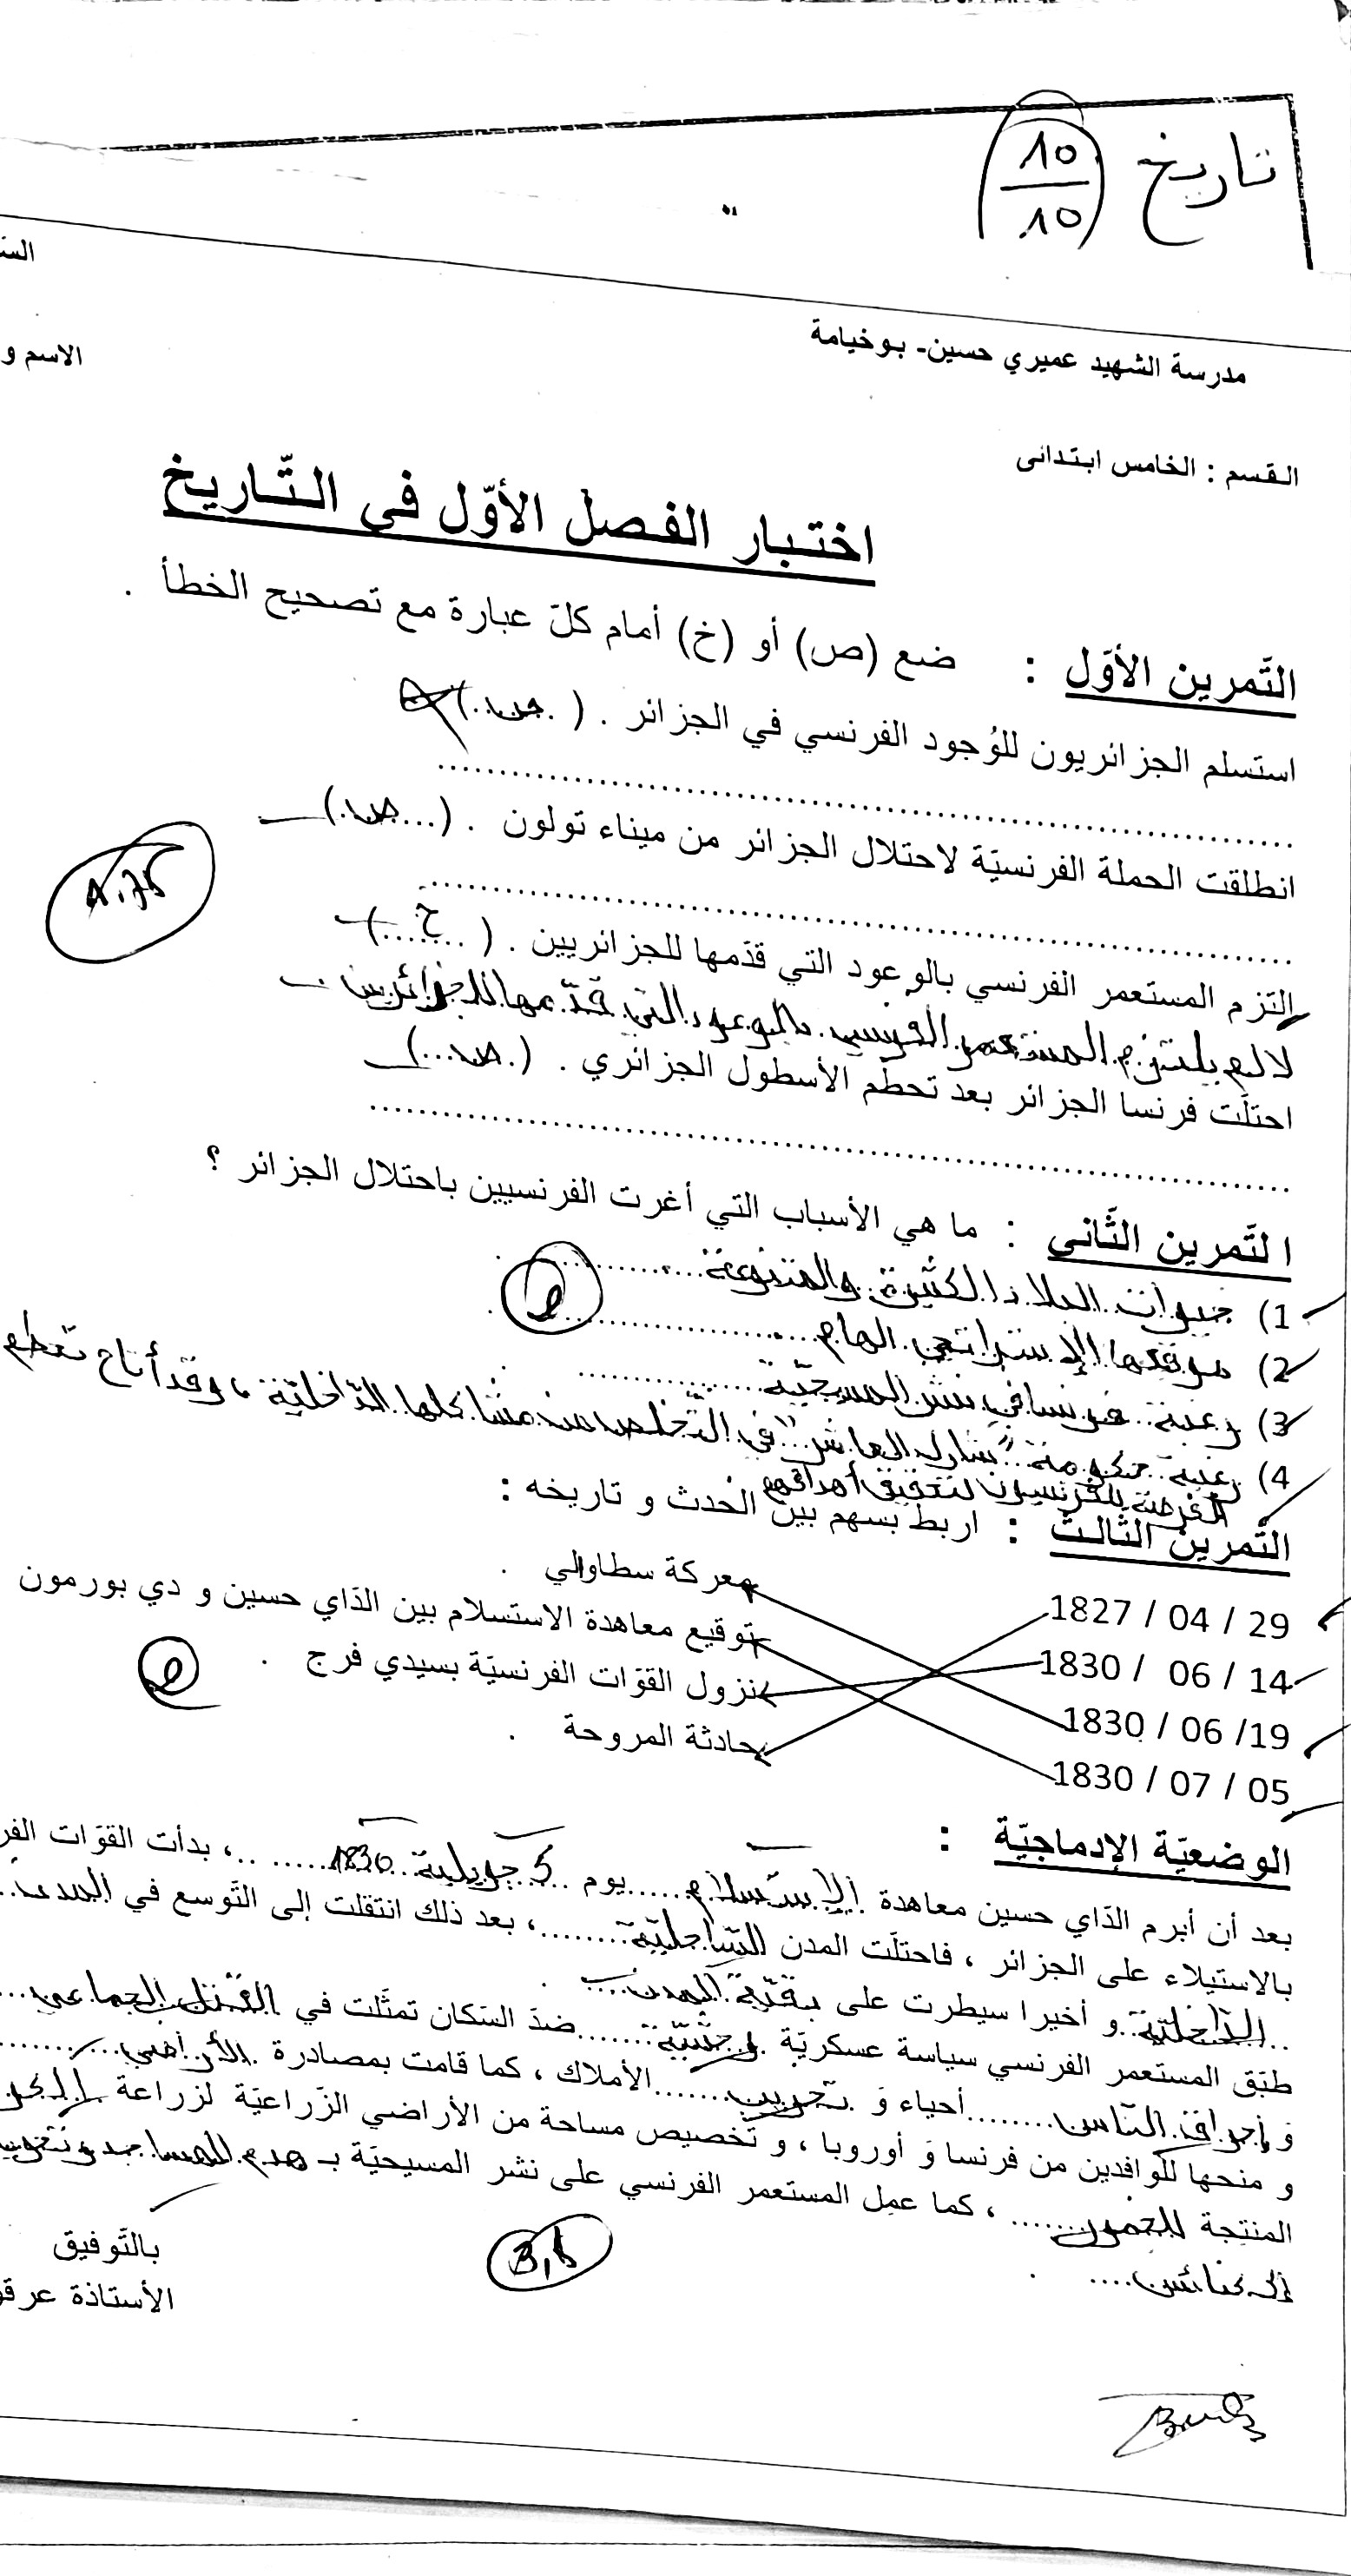 تاريخ
10
10
السن
مدرسة الشهيد عميري حسين- بوخيامة
الاسم و
القسم : الخامس ابتدائي
اختبار الفصل الأوّل في التّاريخ
التّمرين الأوّل : ضع (ص) أو (خ) أمام كلّ عبارة مع تصحيح الخطأ .
استسلم الجزائريون للوُجود الفرنسي في الجزائر . (..ص..)
انطلقت الحملة الفرنسيّة لاحتلال الجزائر من ميناء تولون . (...ص..)
التزم المستعمر الفرنسي بالوعود التي قدّمها للجزائريين . (..خ..)
لا لم يلتزم المستعمر الفرنسي بالوعود التي قدّمها للجزائريين .
احتلّت فرنسا الجزائر بعد تحطّم الأسطول الجزائري . (..ص..)
التّمرين الثّاني : ما هي الأسباب التي أغرت الفرنسيين باحتلال الجزائر ؟
1) خيرات البلاد الكثيرة والمتنوعة
2) موقعها الإستراتيجي الهام
3) رغبة فرنسا في نشر المسيحيّة
4) رغبة حكومة "شارل العاشر" في التّخلص من مشاكلها الدّاخليّة ، وقد أتاح تحطم
الفرصة للفرنسيون لتحقيق أهدافهم
التّمرين الثّالث : اربط بسهم بين الحدث و تاريخه :
29 / 04 / 1827 معركة سطاوالي .
14 / 06 / 1830 توقيع معاهدة الاستسلام بين الدّاي حسين و دي بورمون
19/ 06 / 1830 نزول القوّات الفرنسيّة بسيدي فرج .
05 / 07 / 1830 حادثة المروحة .
الوضعيّة الإدماجيّة :
بعد أن أبرم الدّاي حسين معاهدة الإستسلام يوم 5 جويلية 1830 ، بدأت القوّات الفر
بالاستيلاء على الجزائر ، فاحتلّت المدن السّاحليّة ، بعد ذلك انتقلت إلى التّوسع في المدن
الدّاخليّة و أخيرا سيطرت على بقيّة المدن .
طبّق المستعمر الفرنسي سياسة عسكريّة وحشيّة ضدّ السّكان تمثّلت في القتل الجماعي
وَ إحراق النّاس أحياء وَ تخريب الأملاك ، كما قامت بمصادرة الأراضي
و منحها للوافدين من فرنسا وَ أوروبا ، و تخصيص مساحة من الأراضي الزّراعيّة لزراعة الكر
المنتجة للخمور ، كما عمل المستعمر الفرنسي على نشر المسيحيّة بـ هدم المساجد و تحويل
إلى كنائس
3,5
بالتّوفيق
الأستاذة عرقو